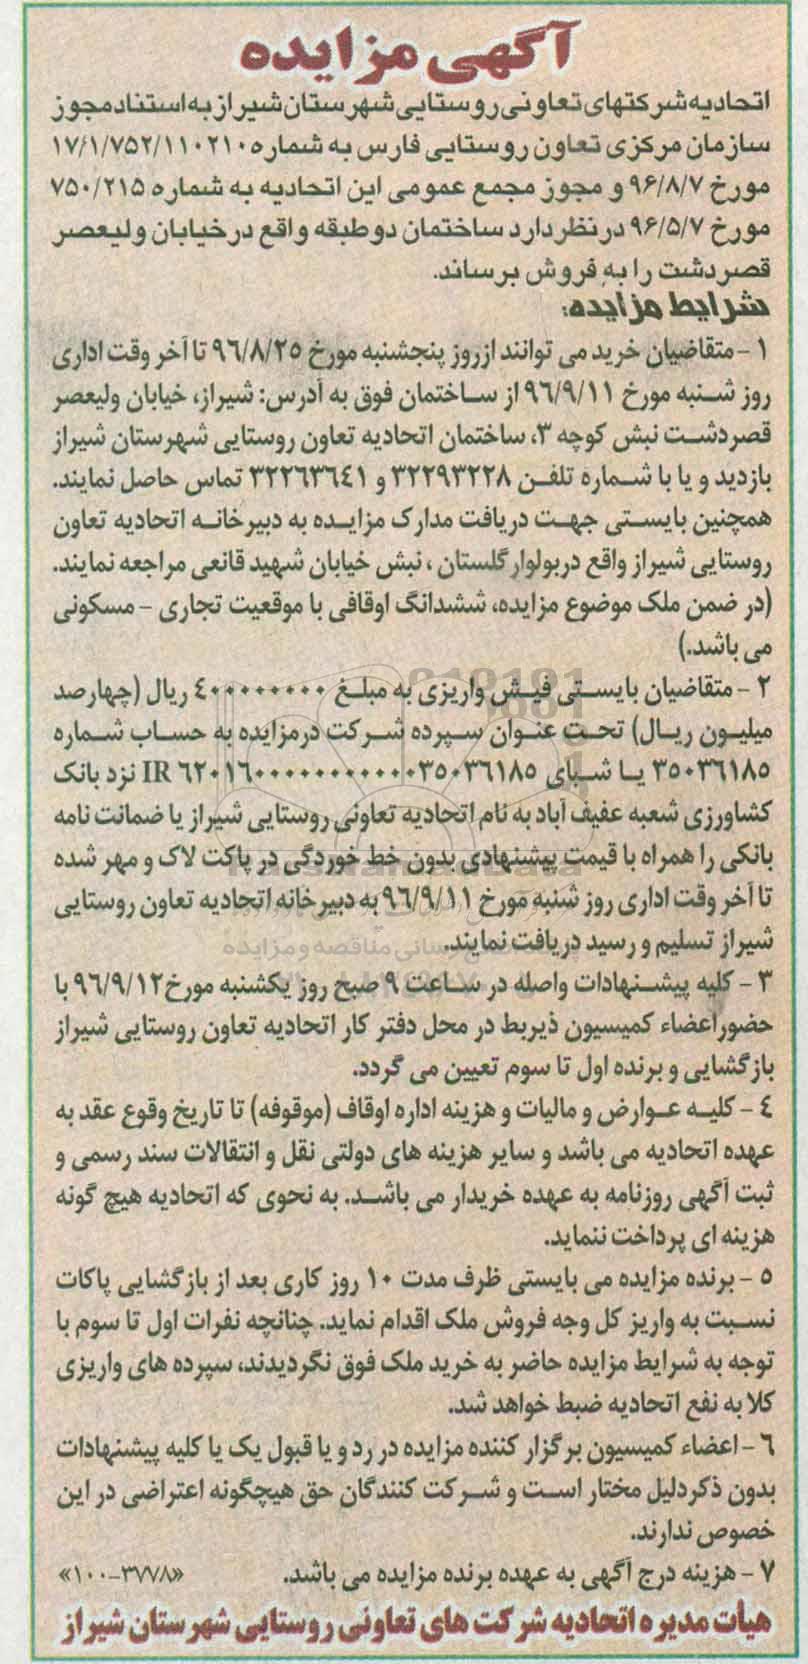 آگهی مزایده
اتحادیه شرکتهای تعاونی روستایی شهرستان شیراز به استناد مجوز
سازمان مرکزی تعاون روستایی فارس به شماره ۱۷/۱/۷۵۲/۱۱۰۲۱۰
مورخ ۹۶/۸/۷ و مجوز مجمع عمومی این اتحادیه به شماره ۷۵۰/۲۱۵
مورخ ۹۶/۵/۷ در نظر دارد ساختمان دو طبقه واقع در خیابان ولیعصر
قصردشت را به فروش برساند.
شرایط مزایده:
۱ - متقاضیان خرید می توانند از روز پنجشنبه مورخ ۹۶/۸/۲۵ تا آخر وقت اداری
روز شنبه مورخ ۹۶/۹/۱۱ از ساختمان فوق به آدرس: شیراز، خیابان ولیعصر
قصردشت نبش کوچه ۳، ساختمان اتحادیه تعاون روستایی شهرستان شیراز
بازدید و یا با شماره تلفن ۳۲۲۹۳۲۲۸ و ۳۲۲۶۳۶۴۱ تماس حاصل نمایند.
همچنین بایستی جهت دریافت مدارک مزایده به دبیرخانه اتحادیه تعاون
روستایی شیراز واقع در بولوار گلستان ، نبش خیابان شهید قانعی مراجعه نمایند.
(در ضمن ملک موضوع مزایده، ششدانگ اوقافی با موقعیت تجاری - مسکونی
می باشد.)
۲ - متقاضیان بایستی فیش واریزی به مبلغ ۴۰۰۰۰۰۰۰۰ ریال (چهارصد
میلیون ریال) تحت عنوان سپرده شرکت در مزایده به حساب شماره
۳۵۰۳۶۱۸۵ یا شبای IR ۶۲۰۱۶۰۰۰۰۰۰۰۰۰۰۰۰۳۵۰۳۶۱۸۵ نزد بانک
کشاورزی شعبه عفیف آباد به نام اتحادیه تعاونی روستایی شیراز یا ضمانت نامه
بانکی را همراه با قیمت پیشنهادی بدون خط خوردگی در پاکت لاک و مهر شده
تا آخر وقت اداری روز شنبه مورخ ۹۶/۹/۱۱ به دبیرخانه اتحادیه تعاون روستایی
شیراز تسلیم و رسید دریافت نمایند.
۳ - کلیه پیشنهادات واصله در ساعت ۹ صبح روز یکشنبه مورخ ۹۶/۹/۱۲ با
حضور اعضاء کمیسیون ذیربط در محل دفتر کار اتحادیه تعاون روستایی شیراز
بازگشایی و برنده اول تا سوم تعیین می گردد.
۴ - کلیه عوارض و مالیات و هزینه اداره اوقاف (موقوفه) تا تاریخ وقوع عقد به
عهده اتحادیه می باشد و سایر هزینه های دولتی نقل و انتقالات سند رسمی و
ثبت آگهی روزنامه به عهده خریدار می باشد. به نحوی که اتحادیه هیچ گونه
هزینه ای پرداخت ننماید.
۵ - برنده مزایده می بایستی ظرف مدت ۱۰ روز کاری بعد از بازگشایی پاکات
نسبت به واریز کل وجه فروش ملک اقدام نماید. چنانچه نفرات اول تا سوم با
توجه به شرایط مزایده حاضر به خرید ملک فوق نگردیدند، سپرده های واریزی
کلا به نفع اتحادیه ضبط خواهد شد.
۶ - اعضاء کمیسیون برگزار کننده مزایده در رد و یا قبول یک یا کلیه پیشنهادات
بدون ذکر دلیل مختار است و شرکت کنندگان حق هیچگونه اعتراضی در این
خصوص ندارند.
۷ - هزینه درج آگهی به عهده برنده مزایده می باشد. «۱۰۰-۳۷۷۸»
هیأت مدیره اتحادیه شرکت های تعاونی روستایی شهرستان شیراز